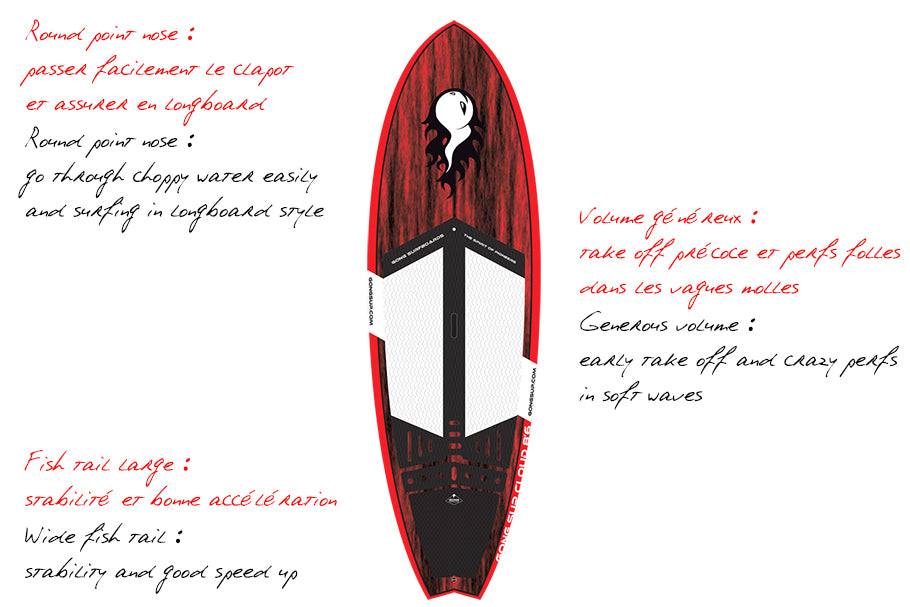 Round point nose :
passer facilement le clapot
et assurer en longboard
Round point nose :
go through choppy water easily
and surfing in longboard style
Volume généreux :
take off précoce et perfs folles
dans les vagues molles
Generous volume :
early take off and crazy perfs
in soft waves
Fish tail large :
stabilité et bonne accélération
Wide fish tail :
stability and good speed up
GONG SURFBOARDS
THE SPIRIT OF PIONEERS
GONGSUP.COM
GONGSUP.COM
GONG SUP CLOUD 8'6